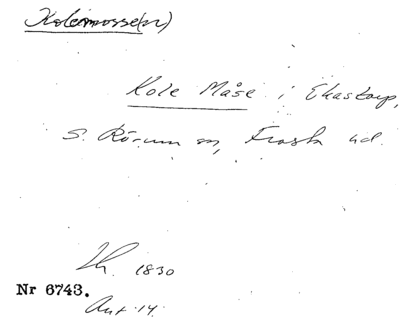 Kolemosse(n)
Kole Måse i Ekastorp,
S. Rörum sn, Frosta hd.
Lh. 1830
Nr 6743.
Ant. 14.